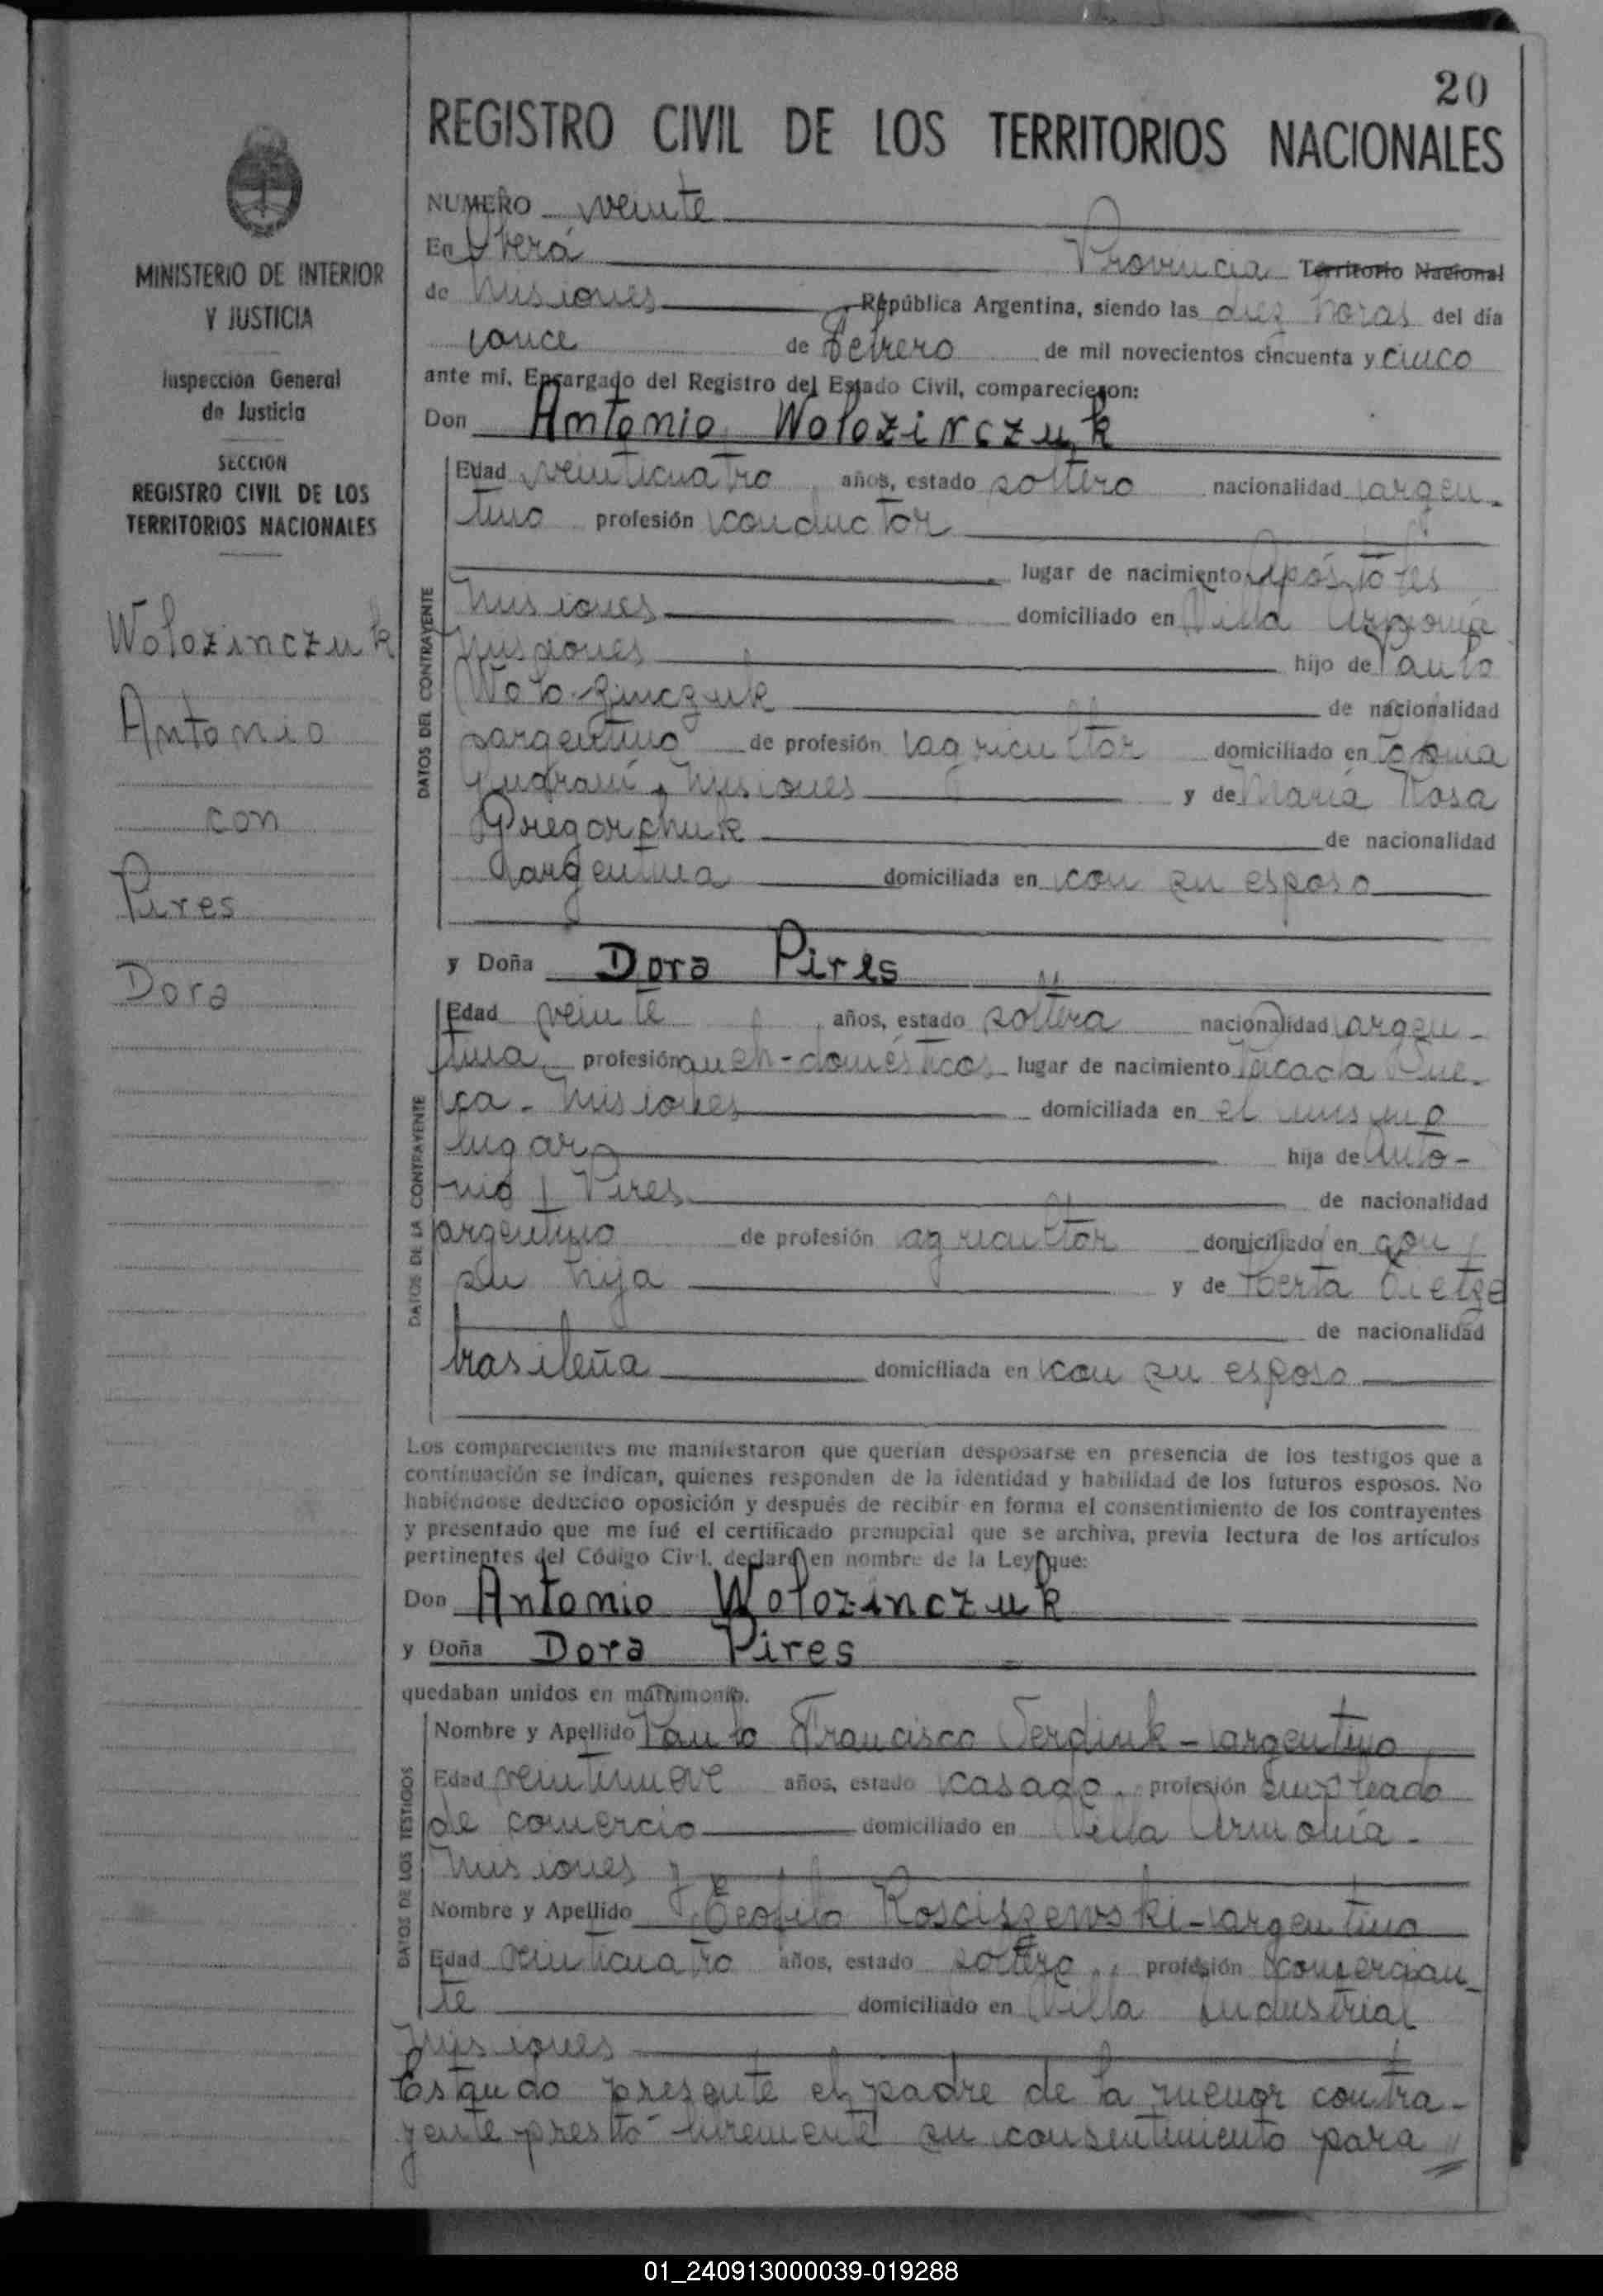 20
REGISTRO CIVIL DE LOS TERRITORIOS NACIONALES
MINISTERIO DE INTERIOR
Y JUSTICIA
Inspección General
de Justicia
SECCION
REGISTRO CIVIL DE LOS
TERRITORIOS NACIONALES
Wolozinczuk
Antonio
con
Pires
Dora
NUMERO veinte
En Oberá Provincia Territorio Nacional
de Misiones República Argentina, siendo las diez horas del día
once de Febrero de mil novecientos cincuenta y cinco
ante mí, Encargado del Registro del Estado Civil, comparecieron:
Don Antonio Wolozinczuk
DATOS DEL CONTRAYENTE
Edad veinticuatro años, estado soltero nacionalidad argen-
tino profesión conductor
lugar de nacimiento Apóstoles
Misiones domiciliado en Villa Armonía
Misiones hijo de Paulo
Wolozinczuk de nacionalidad
argentino de profesión agricultor domiciliado en
Guaraní, Misiones y de María Rosa
Gregorchuk de nacionalidad
argentina domiciliada en con su esposo
y Doña Dora Pires
DATOS DE LA CONTRAYENTE
Edad veinte años, estado soltera nacionalidad argen-
tina profesión queh-domésticos lugar de nacimiento Picada
Misiones domiciliada en el mismo
lugar hija de Anto-
nio Pires de nacionalidad
argentino de profesión agricultor domiciliado en con
su hija y de Berta
de nacionalidad
brasileña domiciliada en con su esposo
Los comparecientes me manifestaron que querían desposarse en presencia de los testigos que a
continuación se indican, quienes responden de la identidad y habilidad de los futuros esposos. No
habiéndose deducido oposición y después de recibir en forma el consentimiento de los contrayentes
y presentado que me fué el certificado prenupcial que se archiva, previa lectura de los artículos
pertinentes del Código Civil, declaro en nombre de la Ley que:
Don Antonio Wolozinczuk
y Doña Dora Pires
quedaban unidos en matrimonio.
DATOS DE LOS TESTIGOS
Nombre y Apellido Paulo Francisco Serdiuk - argentino
Edad veintinueve años, estado casado, profesión empleado
de comercio domiciliado en Villa Armonía-
Misiones y
Nombre y Apellido Teofilo Rosciszewski-argentino
Edad veinticuatro años, estado soltero, profesión comercian-
te domiciliado en Villa Industrial
Misiones
Estando presente el padre de la menor contra-
yente prestó libremente su consentimiento para //
01_240913000039-019288